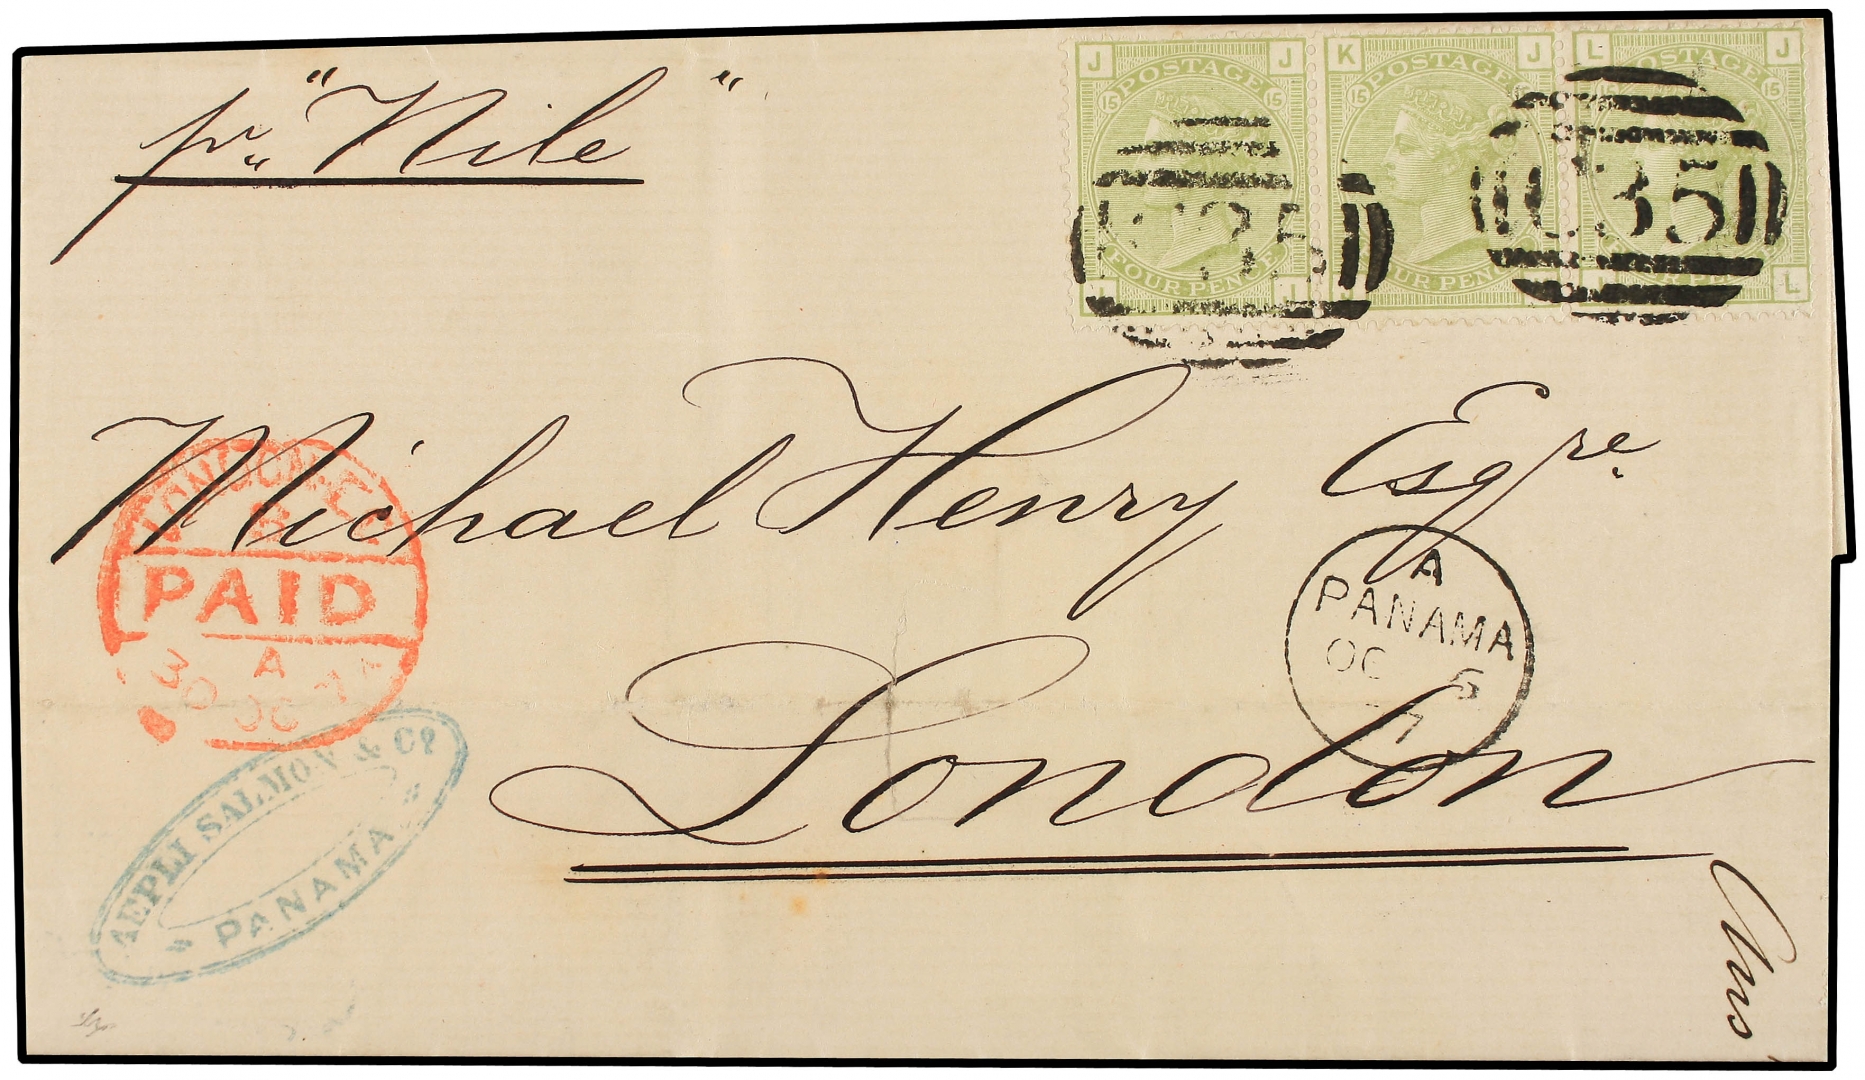 pr. "Nile"
J J K J L J
POSTAGE POSTAGE POSTAGE
15 15 15 15 15 15
C35 C35
FOUR PENCE FOUR PENCE
L
Michael Henry Esqre.
PAID
A
30 OC 7
A
PANAMA
OC 6
7
London
AEPLI SALMON & Co
PANAMA